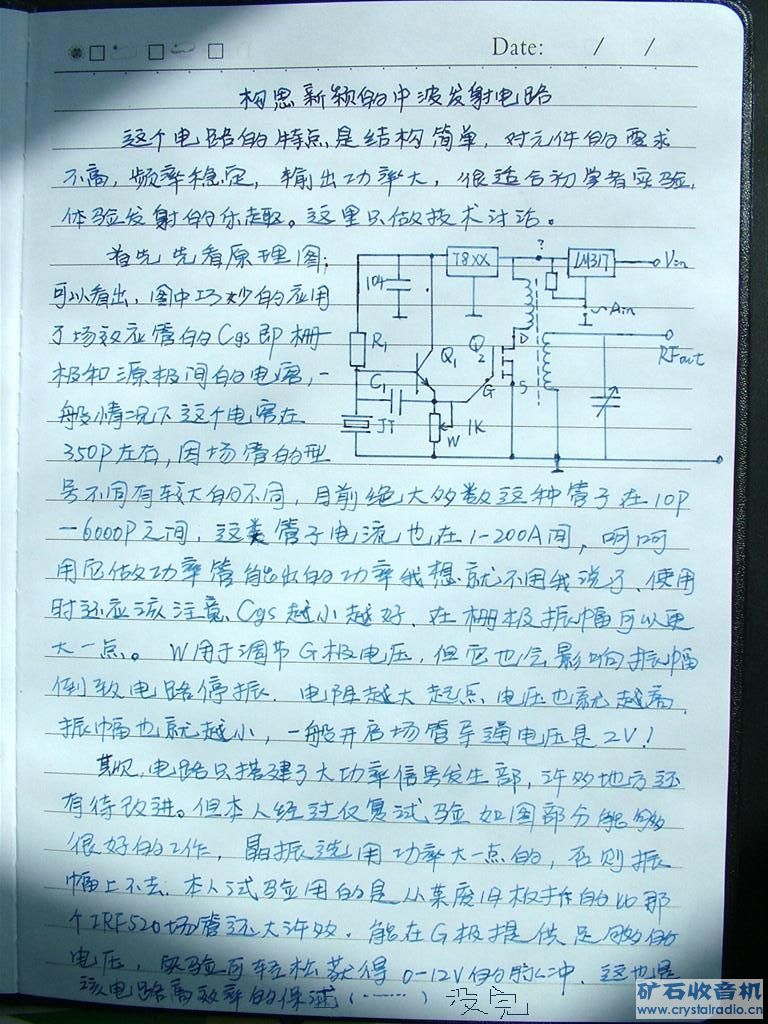 Date: / /
构思新颖的中波发射电路
这个电路的特点是结构简单,对元件的要求
不高,频率稳定,输出功率大,很适合初学者实验,
体验发射的乐趣。这里只做技术讨论。
首先先看原理图;
可以看出,图中巧妙的应用
了场效应管的Cgs即栅
极和源极间的电容,一
般情况下这个电容在
350P左右,因场管的型
78XX
?
LM317
Vin
104
Ain
R1
Q1
Q2
D
G
S
RFout
C1
JT
W
1K
号不同有较大的不同,目前绝大多数这种管子在10P
-6000P之间,这类管子电流也在1-200A间,呵呵
用它做功率管能出的功率我想就不用我说了.使用
时还应该注意Cgs越小越好.在栅极振幅可以更
大一点。W用于调节G极电压,但它也会影响振幅
倒致电路停振.电阻越大起点电压也就越高.
振幅也就越小,一般开启场管导通电压是2V!
其次,电路只搭建了大功率信号发生部,许多地方还
有待改进。但本人经过仅复试验如图部分能够
很好的工作,晶振选用功率大一点的,否则振
幅上不去.本人试验用的是从某废旧板拆的比那
个IRF520场管还大许多.能在G极提供足够的
电压,实验可轻松获得0-12V的脉冲.这也是
该电路高效率的保证(……)没完
矿石收音机
www.crystalradio.cn